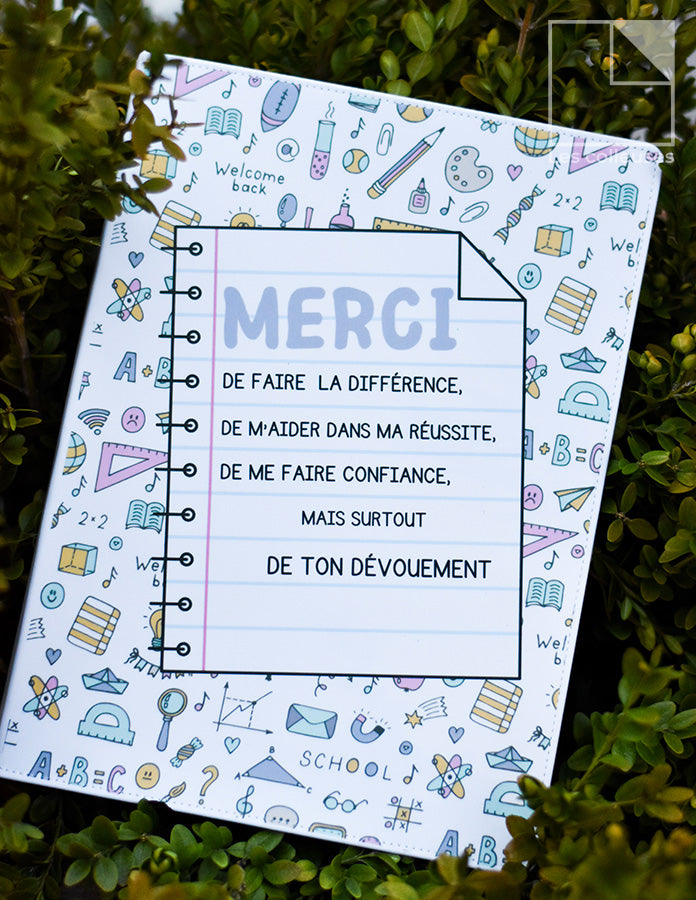 Les colleuses
Welcome
back
2×2
Wel
b
MERCI
DE FAIRE LA DIFFÉRENCE,
DE M'AIDER DANS MA RÉUSSITE,
DE ME FAIRE CONFIANCE,
MAIS SURTOUT
DE TON DÉVOUEMENT
A+B
A+B=C
2×2
We
b
Wel
b
SCHOOL
A+B=C
B
A
C
A+B